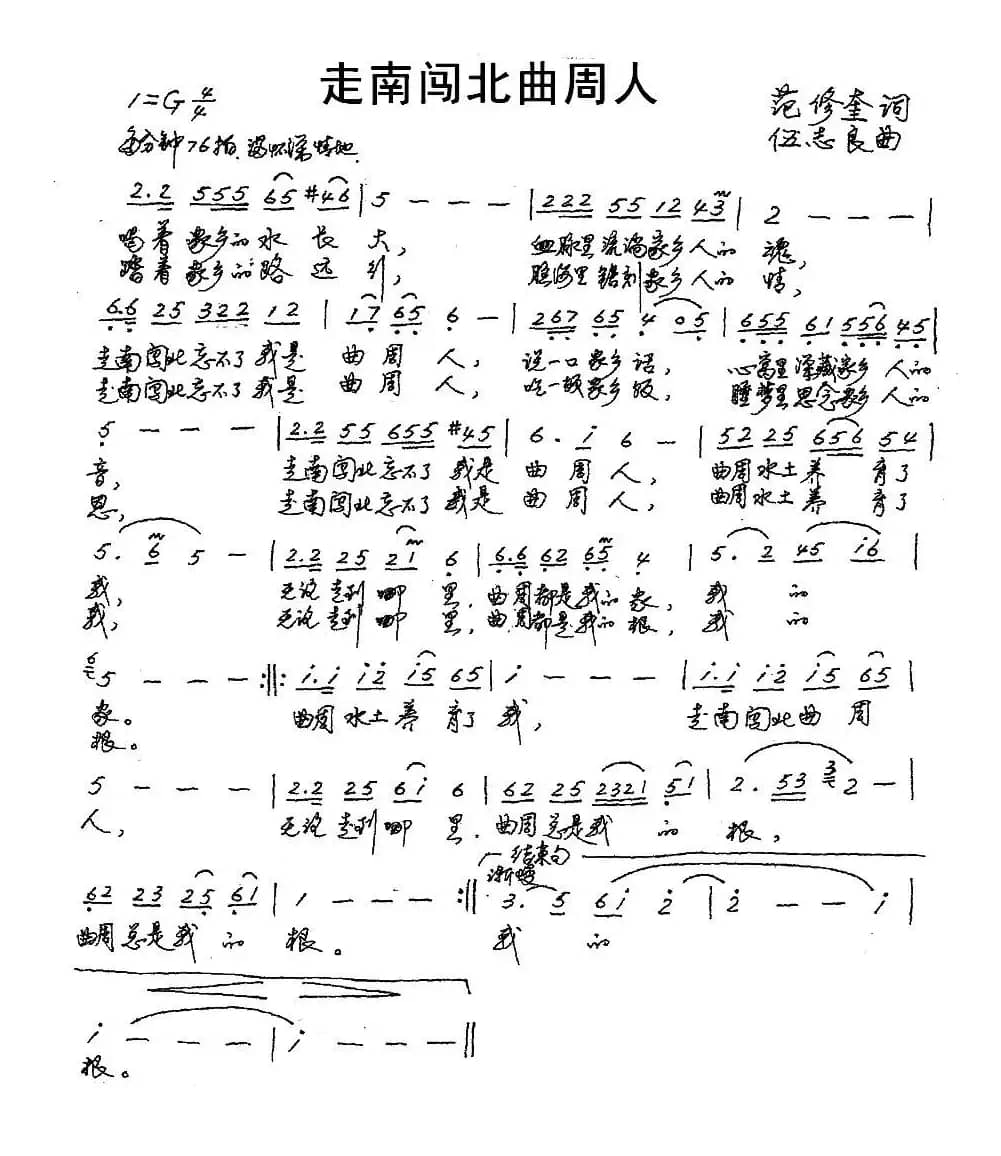 走南闯北曲周人
1=G 4/4
范修奎词
伍志良曲
每分钟76拍 满怀深情地
2.2 555 65 #46 | 5 - - - | 222 55 12 43 | 2 - - - |
喝着家乡的水长大， 血脉里流淌家乡人的魂，
踏着家乡的路远行， 脑海里镌刻家乡人的情，
6.6 25 322 12 | 17 65 6 - | 267 65 4 05 | 655 61 556 45 |
走南闯北忘不了我是曲周人， 说一口家乡话， 心窝里深藏家乡人的
走南闯北忘不了我是曲周人， 吃一顿家乡饭， 睡梦里思念家乡人的
5 - - - | 2.2 55 655 #45 | 6. i 6 - | 52 25 656 54 |
音， 走南闯北忘不了我是曲周人， 曲周水土养育了
恩， 走南闯北忘不了我是曲周人， 曲周水土养育了
5. 6 5 - | 2.2 25 21 6 | 6.6 62 65 4 | 5. 2 45 i6 |
我， 无论走到哪里，曲周都是我的家， 我的
我， 无论走到哪里，曲周都是我的根， 我的
6 5 - - - :||: i.i i2 i5 65 | i - - - | i.i i2 i5 65 |
家。 曲周水土养育了我， 走南闯北曲周
根。
5 - - - | 2.2 25 6i 6 | 62 25 2321 51 | 2. 53 3 2 - |
人， 无论走到哪里，曲周总是我的根，
结束句
渐慢
62 23 25 61 | 1 - - - :|| 3. 5 6i 2 | 2 - - i |
曲周总是我的根。 我的
i - - - | i - - - ||
根。